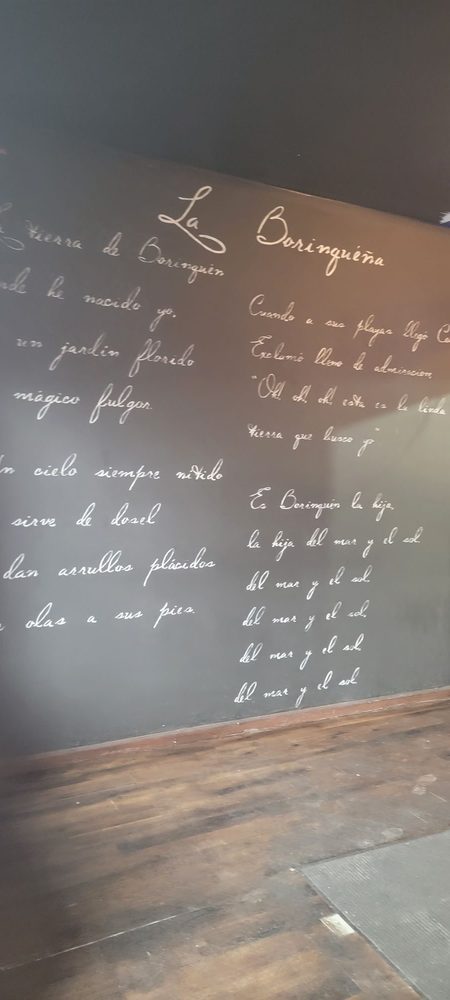 La Borinqueña
tierra de Borinquén
he nacido yo,
un jardín florido
mágico fulgor.
cielo siempre nitido
sirve de dosel
dan arrullos plácidos
olas a sus pies.
Cuando a sus playas llegó
Exclamó lleno de admiracion,
"Oh! oh! oh! esta es la linda
tierra que busco yo"
Es Borinquén la hija,
la hija del mar y el sol.
del mar y el sol.
del mar y el sol,
del mar y el sol.
del mar y el sol.